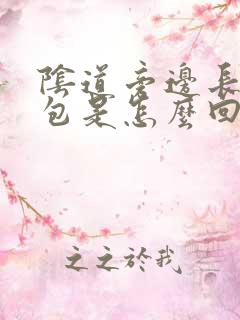 陰道旁邊長
包是怎麼回
之之於我